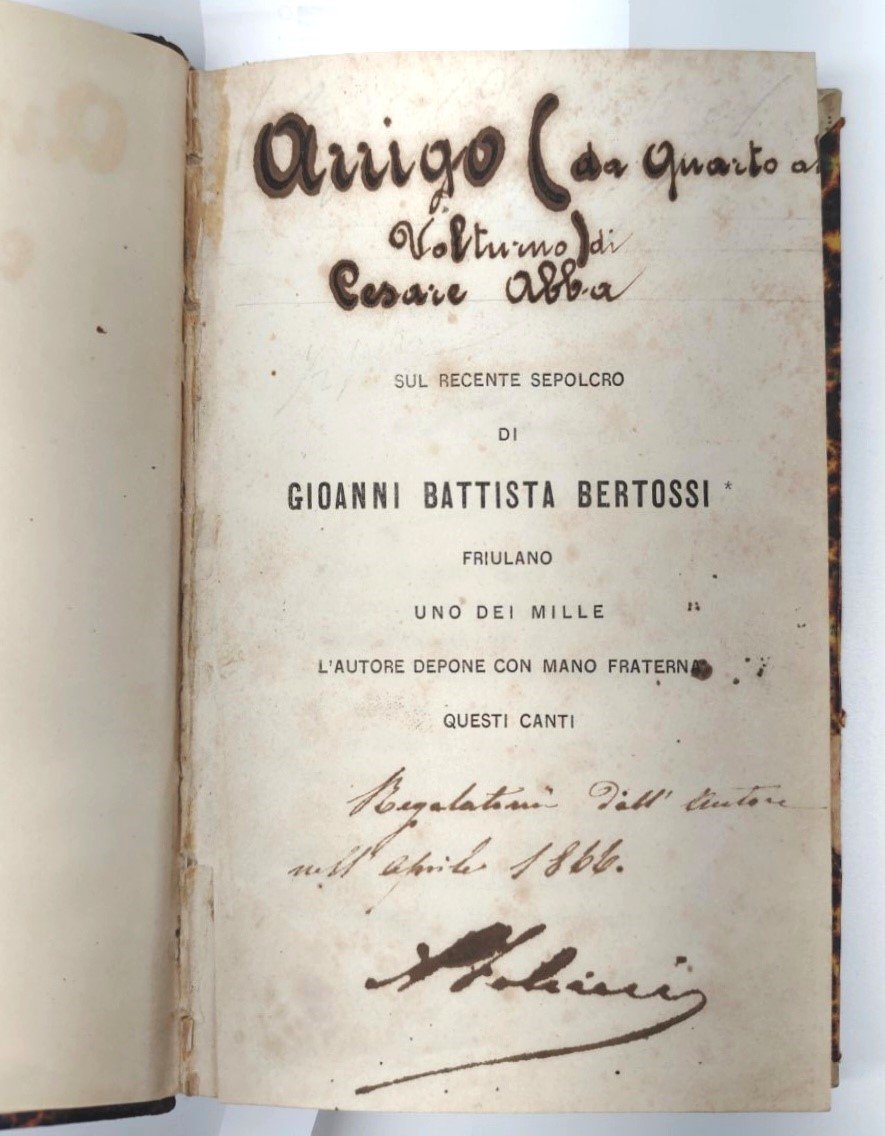 Arrigo (da Quarto al
Volturno) di
Cesare Abba
SUL RECENTE SEPOLCRO
DI
GIOANNI BATTISTA BERTOSSI *
FRIULANO
UNO DEI MILLE
L'AUTORE DEPONE CON MANO FRATERNA
QUESTI CANTI
Regalatomi dall' Autore
nell' aprile 1866.